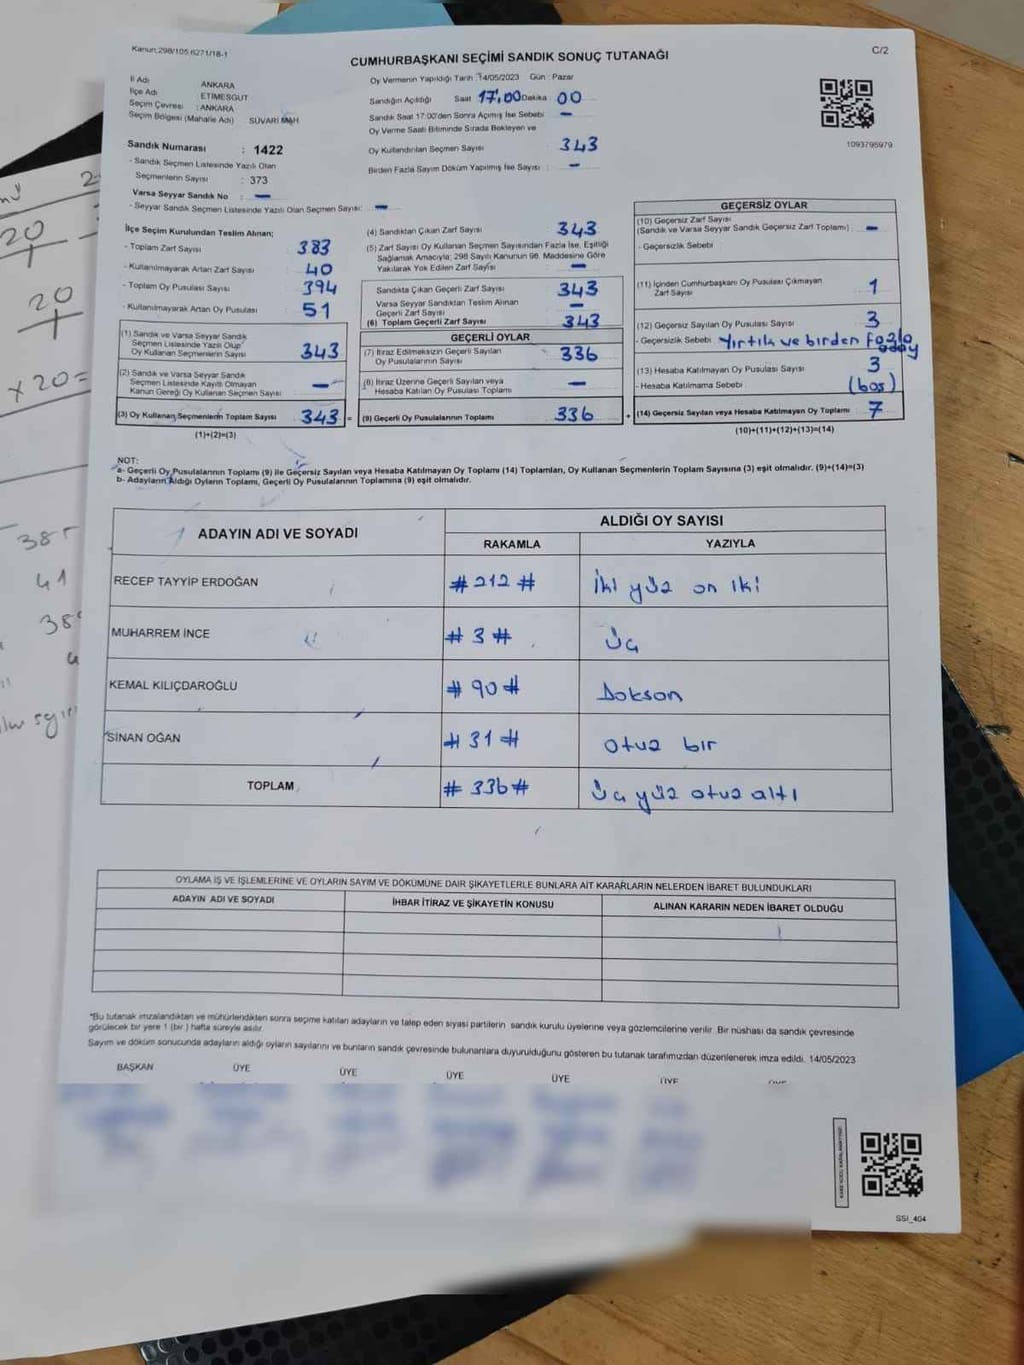 Kanun:298/105 6271/18-1
C/2
CUMHURBAŞKANI SEÇİMİ SANDIK SONUÇ TUTANAĞI
İl Adı ANKARA
İlçe Adı ETİMESGUT
Seçim Çevresi : ANKARA
Seçim Bölgesi (Mahalle Adı) SÜVARİ MAH
Oy Vermenin Yapıldığı Tarih : 14/05/2023 Gün : Pazar
Sandığın Açıldığı Saat 17:00 Dakika 00
Sandık Saat 17:00'den Sonra Açılmış İse Sebebi —
Oy Verme Saati Bitiminde Sırada Bekleyen ve
Oy Kullandırılan Seçmen Sayısı : 343
Birden Fazla Sayım Döküm Yapılmış İse Sayısı : —
1093795979
Sandık Numarası : 1422
- Sandık Seçmen Listesinde Yazılı Olan
Seçmenlerin Sayısı : 373
Varsa Seyyar Sandık No : —
- Seyyar Sandık Seçmen Listesinde Yazılı Olan Seçmen Sayısı: —
İlçe Seçim Kurulundan Teslim Alınan;
- Toplam Zarf Sayısı 383
- Kullanılmayarak Artan Zarf Sayısı 40
- Toplam Oy Pusulası Sayısı 394
- Kullanılmayarak Artan Oy Pusulası 51
(1) Sandık ve Varsa Seyyar Sandık
Seçmen Listesinde Yazılı Olup
Oy Kullanan Seçmenlerin Sayısı 343
(2) Sandık ve Varsa Seyyar Sandık
Seçmen Listesinde Kayıtlı Olmayan
Kanun Gereği Oy Kullanan Seçmen Sayısı —
(3) Oy Kullanan Seçmenlerin Toplam Sayısı 343 =
(1)+(2)=(3)
(4) Sandıktan Çıkan Zarf Sayısı 343
(5) Zarf Sayısı Oy Kullanan Seçmen Sayısından Fazla İse, Eşitliği
Sağlamak Amacıyla; 298 Sayılı Kanunun 98. Maddesine Göre
Yakılarak Yok Edilen Zarf Sayısı —
Sandıkta Çıkan Geçerli Zarf Sayısı 343
Varsa Seyyar Sandıktan Teslim Alınan
Geçerli Zarf Sayısı —
(6) Toplam Geçerli Zarf Sayısı 343
GEÇERLİ OYLAR
(7) İtiraz Edilmeksizin Geçerli Sayılan
Oy Pusulalarının Sayısı 336
(8) İtiraz Üzerine Geçerli Sayılan veya
Hesaba Katılan Oy Pusulası Toplamı —
(9) Geçerli Oy Pusulalarının Toplamı 336 +
GEÇERSİZ OYLAR
(10) Geçersiz Zarf Sayısı
(Sandık ve Varsa Seyyar Sandık Geçersiz Zarf Toplamı) —
- Geçersizlik Sebebi
(11) İçinden Cumhurbaşkanı Oy Pusulası Çıkmayan
Zarf Sayısı 1
(12) Geçersiz Sayılan Oy Pusulası Sayısı 3
- Geçersizlik Sebebi Yırtık ve birden fazla
aday
(13) Hesaba Katılmayan Oy Pusulası Sayısı 3
- Hesaba Katılmama Sebebi (boş)
(14) Geçersiz Sayılan veya Hesaba Katılmayan Oy Toplamı 7
(10)+(11)+(12)+(13)=(14)
NOT:
a- Geçerli Oy Pusulalarının Toplamı (9) ile Geçersiz Sayılan veya Hesaba Katılmayan Oy Toplamı (14) Toplamları, Oy Kullanan Seçmenlerin Toplam Sayısına (3) eşit olmalıdır. (9)+(14)=(3)
b- Adayların Aldığı Oyların Toplamı, Geçerli Oy Pusulalarının Toplamına (9) eşit olmalıdır.
ADAYIN ADI VE SOYADI ALDIĞI OY SAYISI
RAKAMLA YAZIYLA
RECEP TAYYİP ERDOĞAN #212# İki yüz on iki
MUHARREM İNCE #3# Üç
KEMAL KILIÇDAROĞLU #90# Doksan
SİNAN OĞAN #31# otuz bir
TOPLAM #336# Üç yüz otuz altı
OYLAMA İŞ VE İŞLEMLERİNE VE OYLARIN SAYIM VE DÖKÜMÜNE DAİR ŞİKAYETLERLE BUNLARA AİT KARARLARIN NELERDEN İBARET BULUNDUKLARI
ADAYIN ADI VE SOYADI İHBAR İTİRAZ VE ŞİKAYETİN KONUSU ALINAN KARARIN NEDEN İBARET OLDUĞU
*Bu tutanak imzalandıktan ve mühürlendikten sonra seçime katılan adayların ve talep eden siyasi partilerin sandık kurulu üyelerine veya gözlemcilerine verilir. Bir nüshası da sandık çevresinde
görülecek bir yere 1 (bir) hafta süreyle asılır.
Sayım ve döküm sonucunda adayların aldığı oyların sayılarını ve bunların sandık çevresinde bulunanlara duyurulduğunu gösteren bu tutanak tarafımızdan düzenlenerek imza edildi. 14/05/2023
BAŞKAN ÜYE ÜYE ÜYE ÜYE ÜYE
SSI_404
20
20
x 20=
41